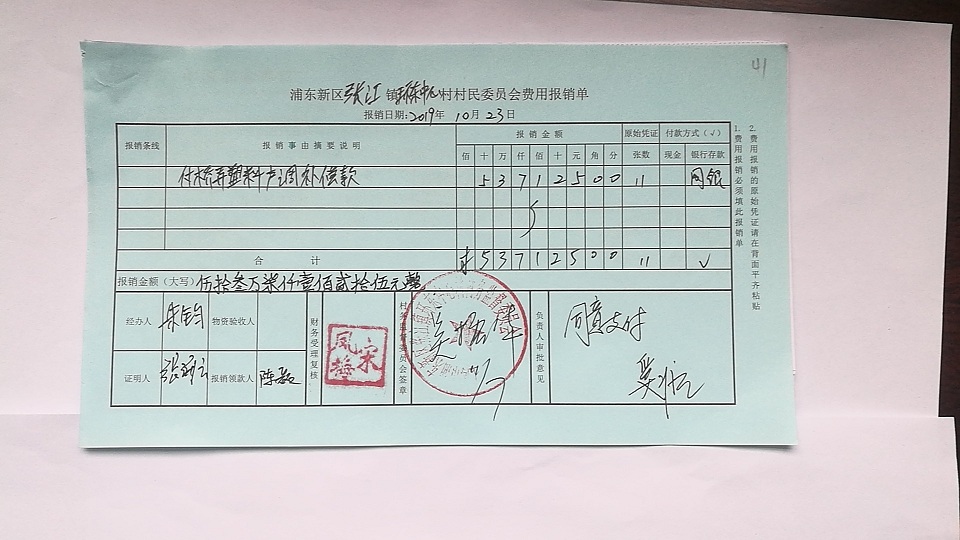 41
浦东新区张江镇环东中心村村民委员会费用报销单
报销日期:2019年10月23日
报销条线 报销事由摘要说明 报销金额 原始凭证 付款方式(√)
佰 十 万 仟 佰 十 元 角 分 张数 现金 银行存款
付桥弄塑料 补偿款 5 3 7 1 2 5 0 0 11 网银
合计 ¥ 5 3 7 1 2 5 0 0 11 √
报销金额(大写) 伍拾叁万柒仟壹佰贰拾伍元整
经办人 朱钧 物资验收人
证明人 报销领款人 陈磊
财务受理复核
宋凤梅
村务监督委员会签章
负责人审批意见
同意支付
1.费用报销必须填此报销单
2.费用报销的原始凭证请在背面平齐粘贴